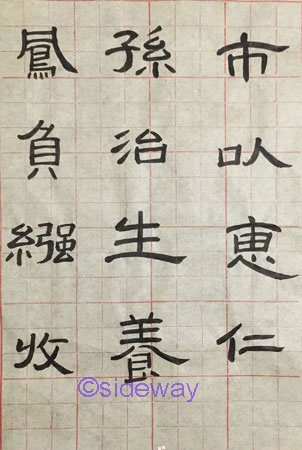 市㕥恵仁
孫治生養
鳳負繦收
©sideway